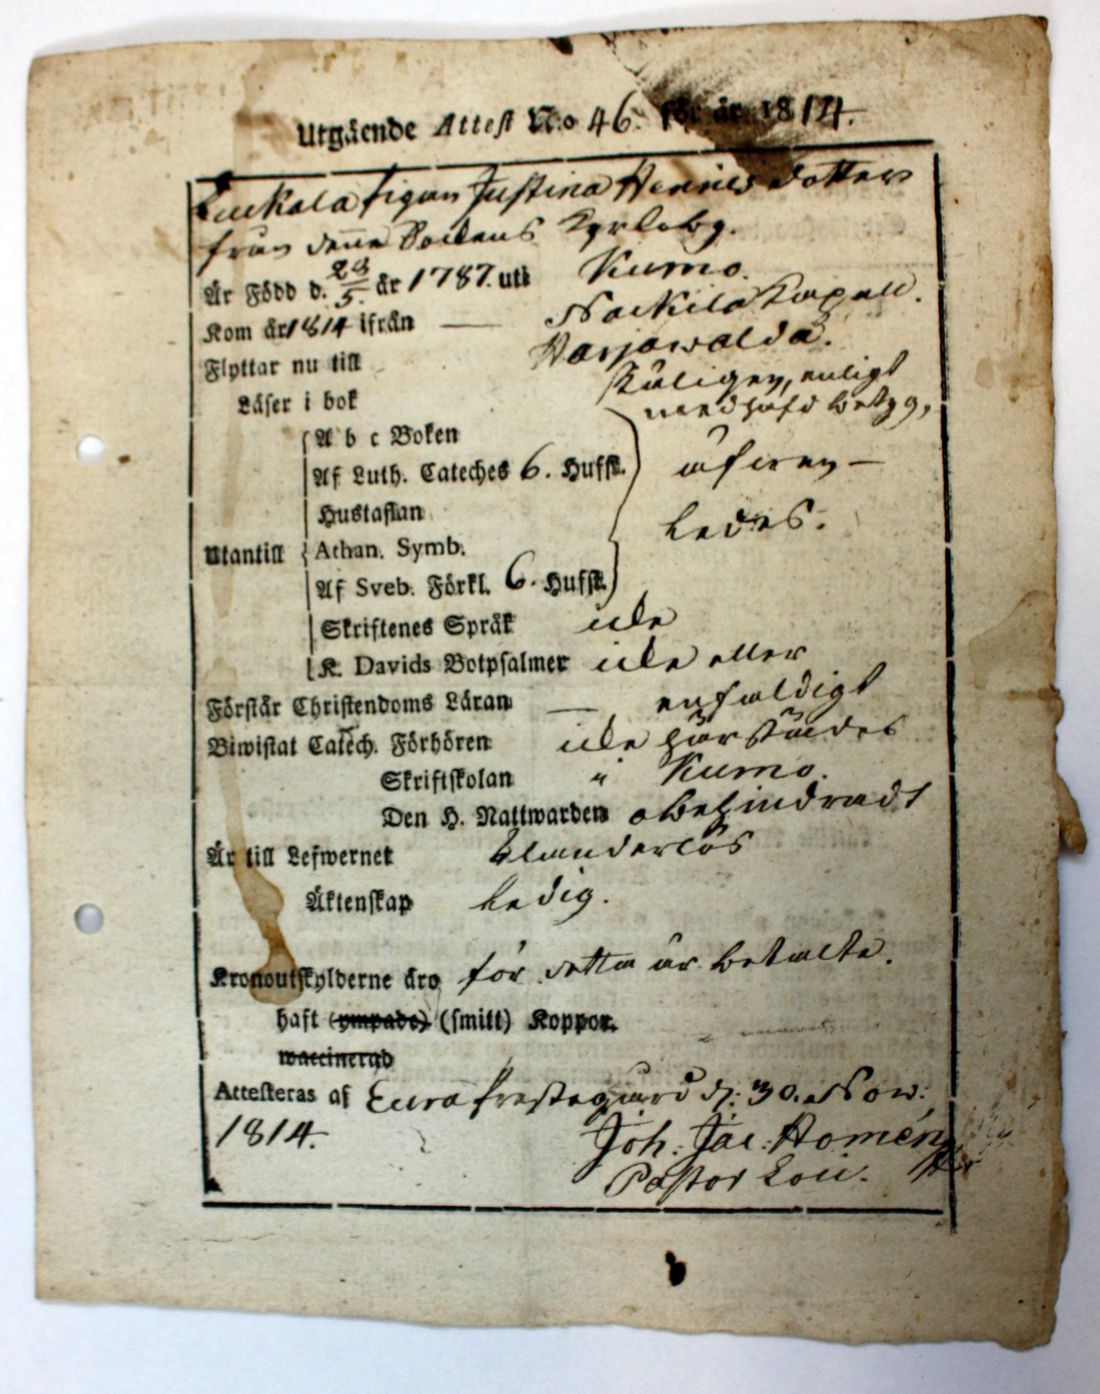 Utgående Attest N:o 46. för år 1814.
Pigan Justina Henricsdotter
från denne Sockens Kyrkoby.
Är Född d. 28/5. år 1787. uti Kumo.
Kom år 1814 ifrån — Nackila Kapell.
Flyttar nu till Harjawalda.
Läser i bok enligt
medhafd betyg,
A b c Boken
Af Luth. Cateches 6. Hufst.
Hustaflan
Utantill Athan. Symb. ledes.
Af Sveb. Förkl. 6. Hufst.
Skriftenes Språk icke
K. Davids Botpsalmer icke eller
Förstår Christendoms Läran — enfaldigt
Biwistat Catech. Förhören icke härstädes
Skriftskolan i Kumo.
Den H. Nattwarden obehindradt
Är till Lefwernet Klanderlös
Äktenskap ledig.
Kronoutskylderne äro för detta år betalte.
haft (ympade) (smitt) Koppor.
waccinerad
Attesteras af Eura Prestegård d. 30. Nov:
1814. Joh: Jac: Homén
Pastor Loci.